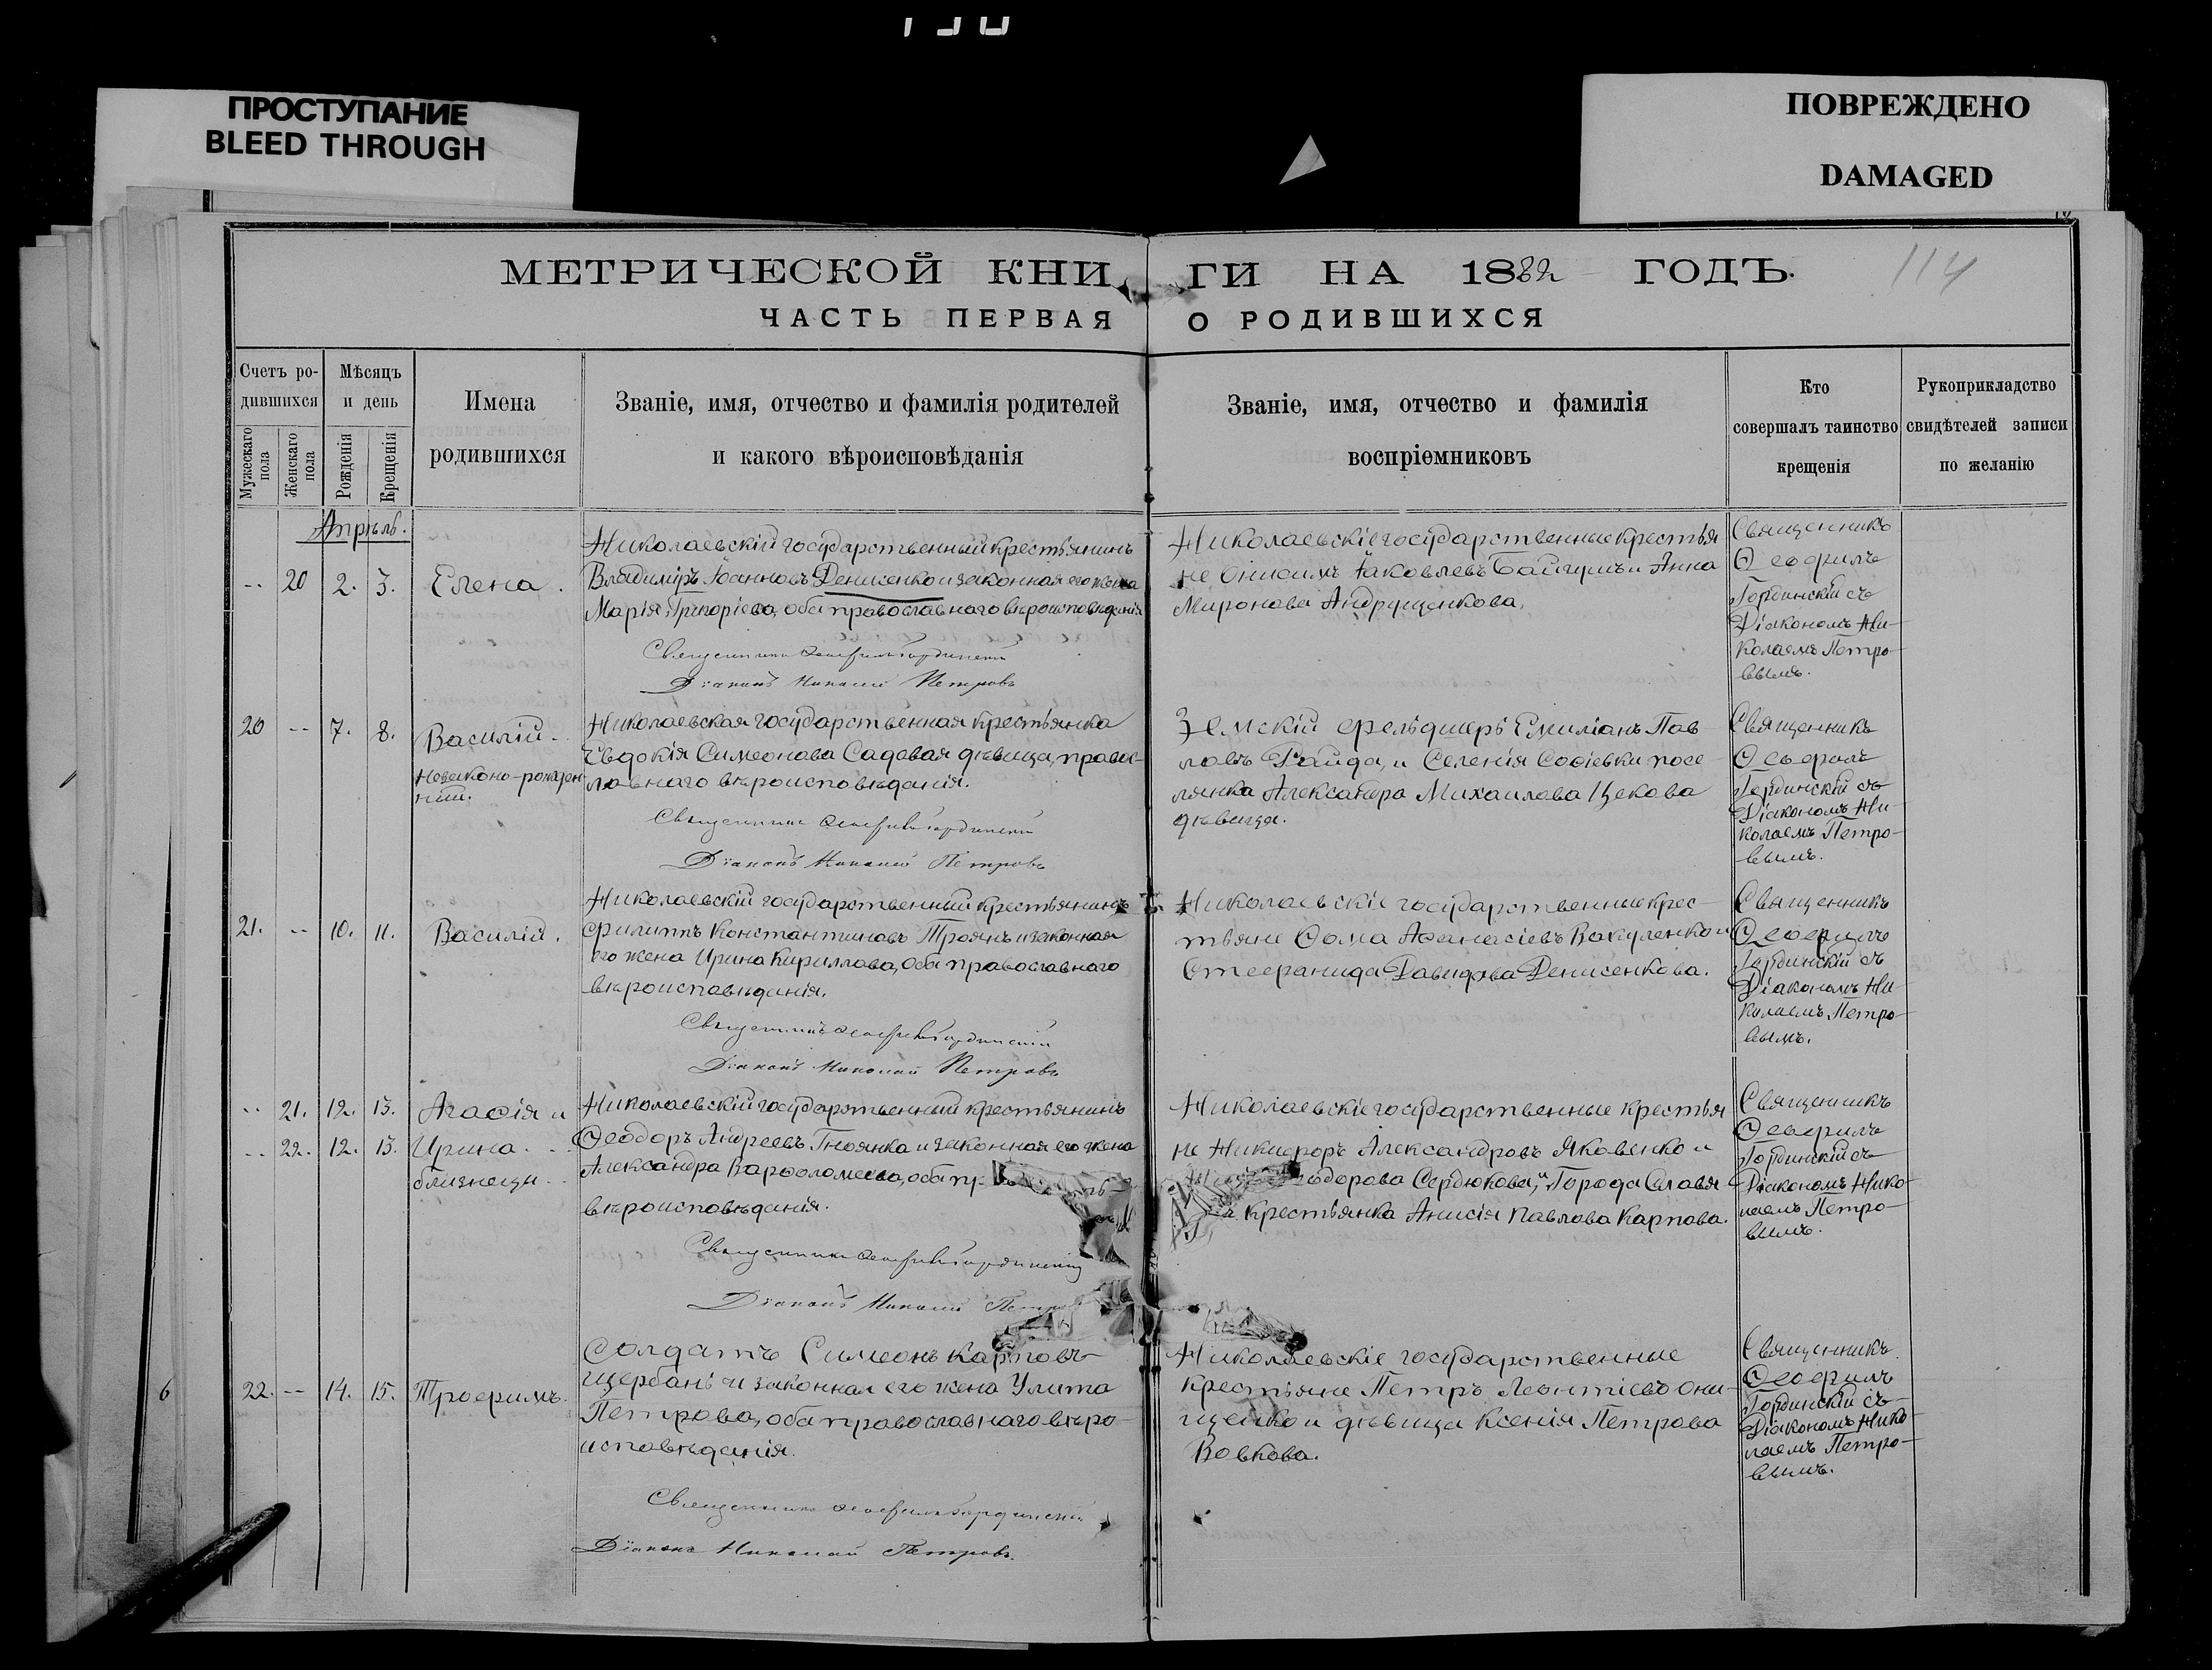 ПРОСТУПАНИЕ
BLEED THROUGH
ПОВРЕЖДЕНО
DAMAGED
МЕТРИЧЕСКОЙ КНИГИ НА 1882 ГОДЪ.
114
ЧАСТЬ ПЕРВАЯ О РОДИВШИХСЯ
Счетъ ро-
дившихся
Мужескаго пола
Женскаго пола
Мѣсяцъ
и день
Рожденія
Крещенія
Имена
родившихся
Званіе, имя, отчество и фамилія родителей
и какого вѣроисповѣданія
Званіе, имя, отчество и фамилія
воспріемниковъ
Кто
совершалъ таинство
крещенія
Рукоприкладство
свидѣтелей записи
по желанію
Апрѣль.
-- 20 2. 3. Елена.
Николаевскій государственный крестьянинъ
Владиміръ Іоанновъ Денисенко и законная его жена
Марія Григоріева, оба православнаго вѣроисповѣданія
Священникъ Ѳеофилъ Гординскій
Діаконъ Николай Петровъ
Николаевскіе государственные крестья
не Онисимъ Іаковлевъ Байгушъ и Анна
Миронова Андрущенкова.
Священникъ
Ѳеофилъ
Гординскій съ
Діакономъ Ни-
колаемъ Петро-
вымъ.
20 -- 7. 8. Василій.
Незаконо-рожден
ный.
Николаевская государственная крестьянка
Евдокія Симеонова Садовая дѣвица, правос-
лавнаго вѣроисповѣданія.
Священникъ Ѳеофилъ Гординскій
Діаконъ Николай Петровъ
Земскій фельдшеръ Емиліанъ Пав-
ловъ Гайда, и Селенія Софіевки посе-
лянка Александра Михаилова Цекова
дѣвица.
Священникъ
Ѳеофилъ
Гординскій съ
Діакономъ Ни-
колаемъ Петро-
вымъ.
21. -- 10. 11. Василій.
Николаевскій государственный крестьянинъ
Филиппъ Константиновъ Троянъ и законная
его жена Ирина Кириллова, оба православнаго
вѣроисповѣданія.
Священникъ Ѳеофилъ Гординскій
Діаконъ Николай Петровъ
Николаевскіе государственные крес-
тьяне Ѳома Аѳанасіевъ Вакуленко и
Стефанида Давидова Денисенкова.
Священникъ
Ѳеофилъ
Гординскій съ
Діакономъ Ни-
колаемъ Петро-
вымъ.
-- 21. 12. 13. Агафія и
-- 22. 12. 13. Ирина.
близнецы.
Николаевскій государственный крестьянинъ
Ѳеодоръ Андреевъ Гноянка и законная его жена
Александра Варфоломеева, оба пр
вѣроисповѣданія.
Священникъ Ѳеофилъ Гординскій
Діаконъ Николай Петровъ
Николаевскіе государственные крестья
не Никифоръ Александровъ Яковенко и
одорова Сердюкова, и Города Славя
крестьянка Анисія Павлова Карпова.
Священникъ
Ѳеофилъ
Гординскій съ
Діакономъ Нико-
лаемъ Петро-
вымъ.
6
22. -- 14. 15. Трофимъ.
Солдатъ Симеонъ Карповъ
Щербань и законная его жена Улита
Петрова, оба православнаго вѣро-
исповѣданія.
Священникъ Ѳеофилъ Гординскій
Діаконъ Николай Петровъ.
Николаевскіе государственные
крестьяне Петръ Леонтіевъ Они-
щенко и дѣвица Ксенія Петрова
Вовкова.
Священникъ
Ѳеофилъ
Гординскій съ
Діакономъ Нико-
лаемъ Петро-
вымъ.